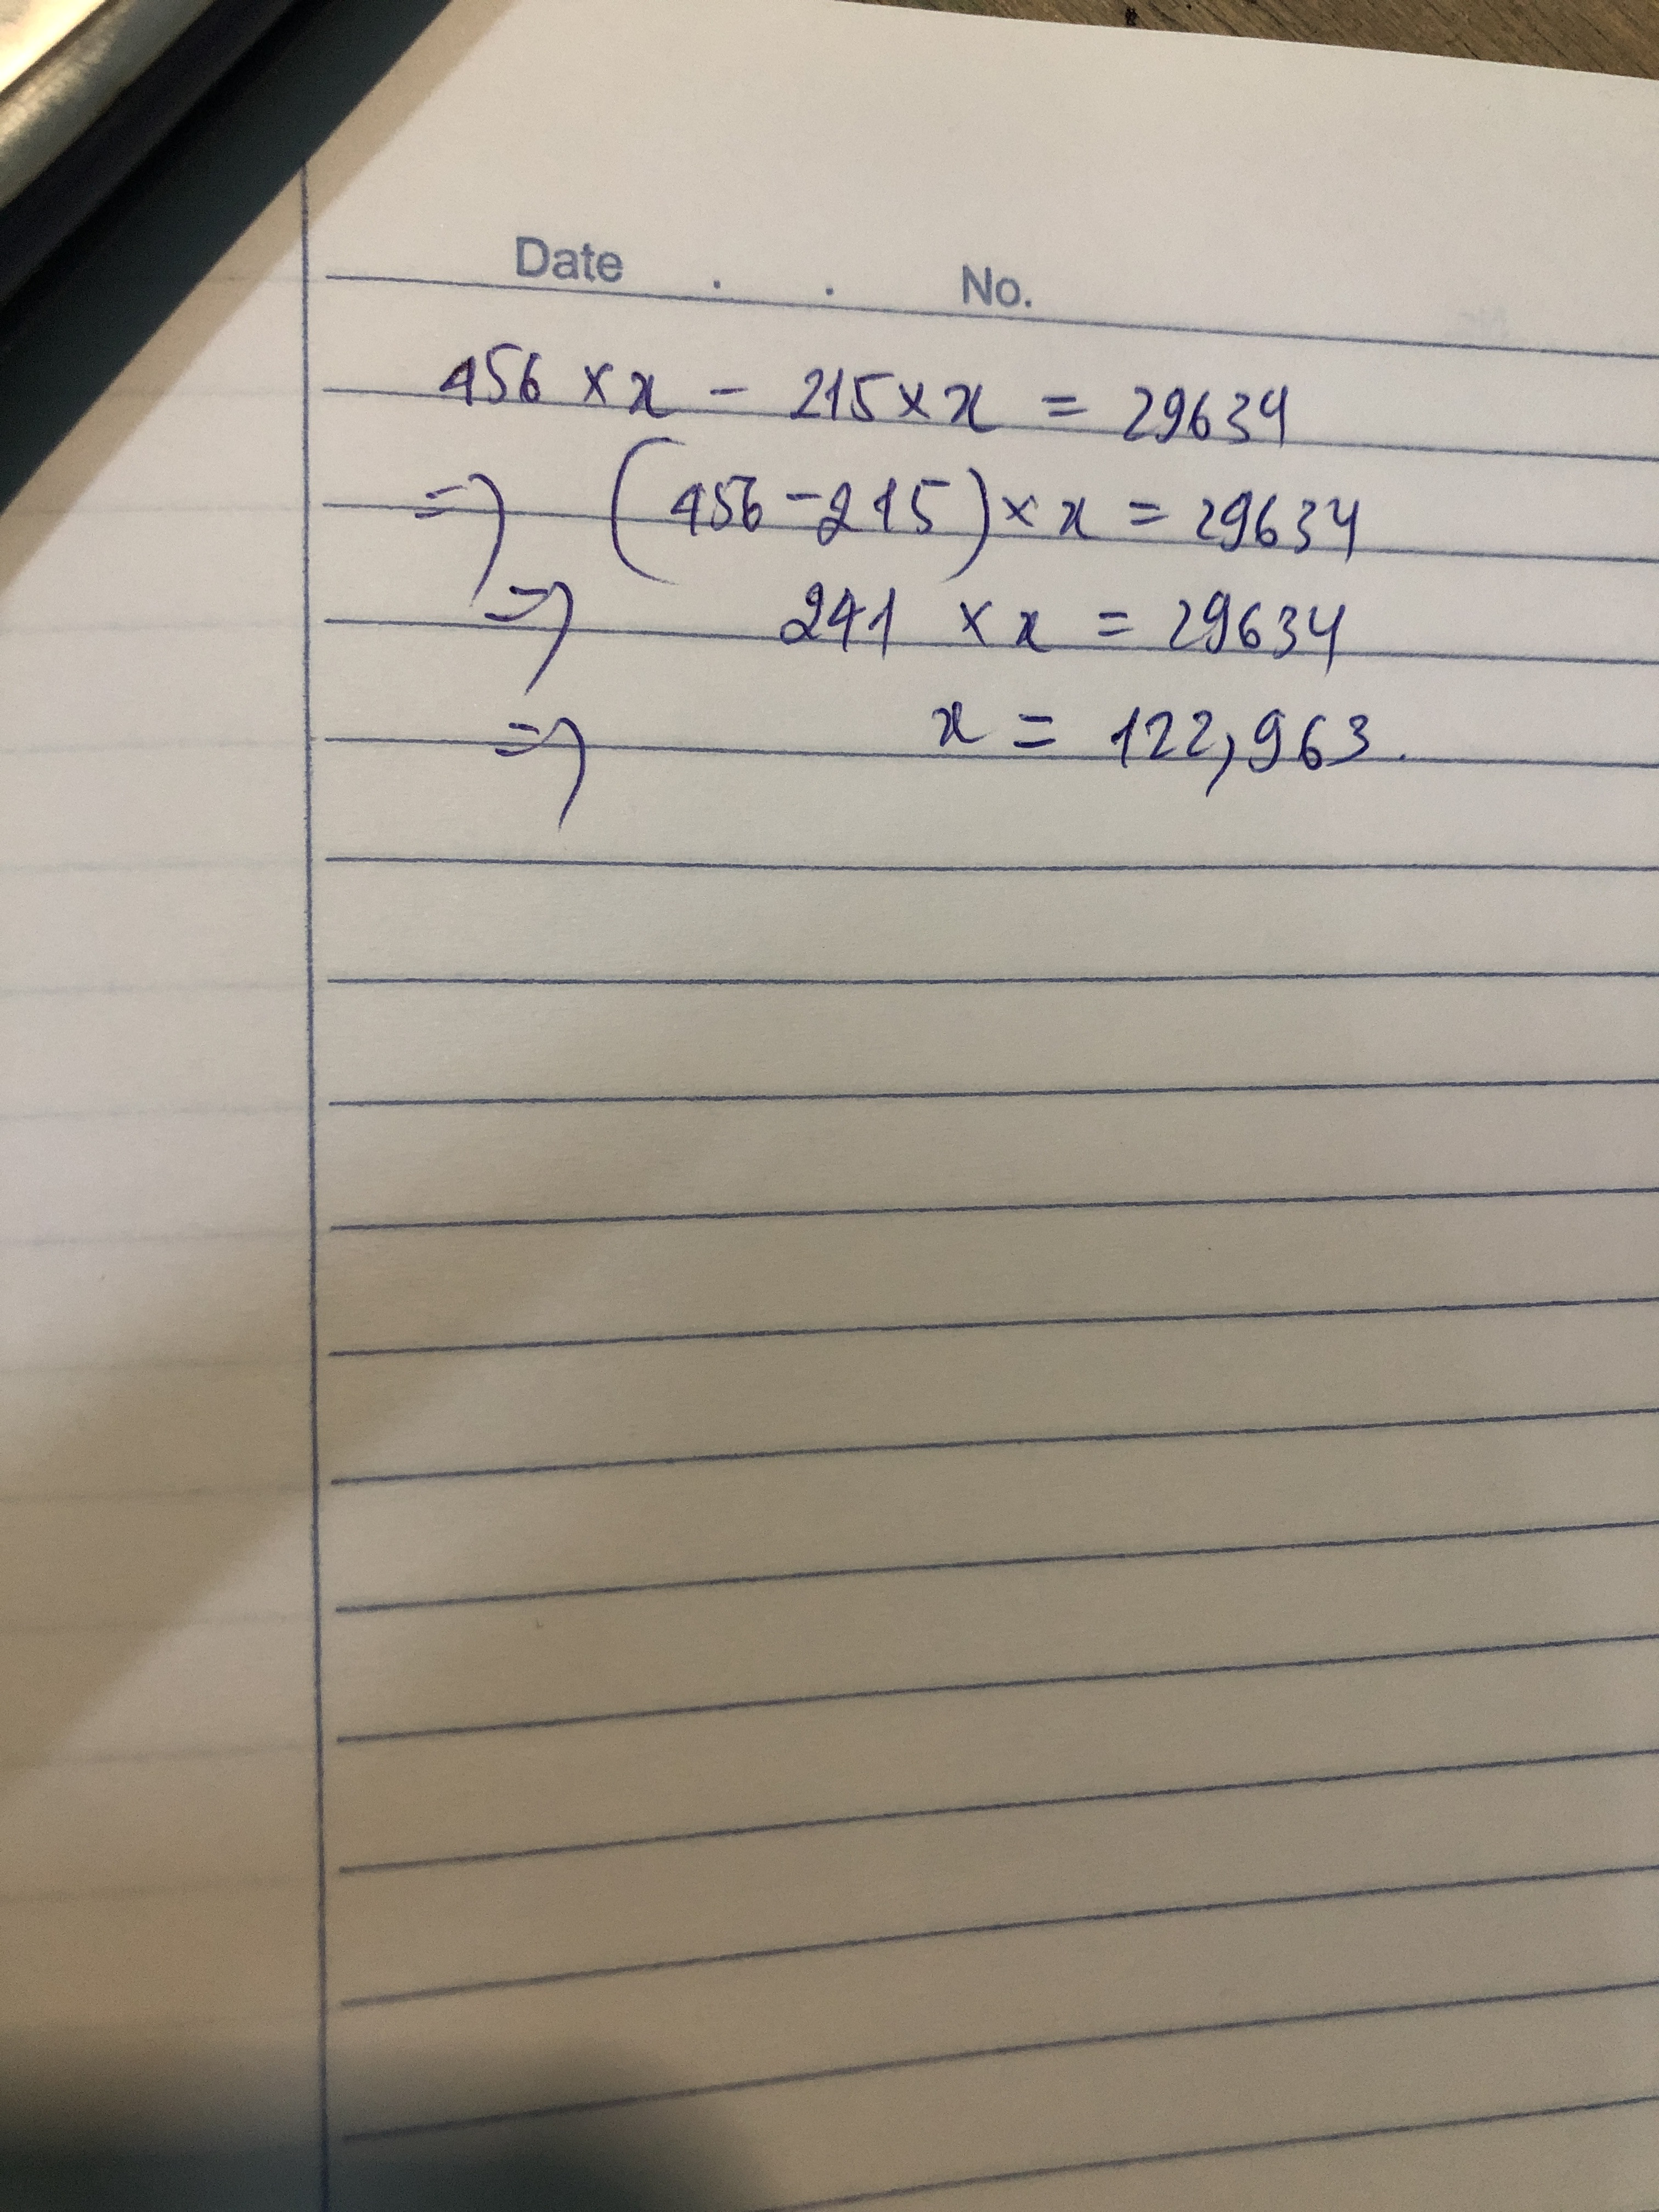 Date . . No.
456 × x - 215 × x = 29634
=> (456 - 215) × x = 29634
=> 241 × x = 29634
=> x = 122,963.